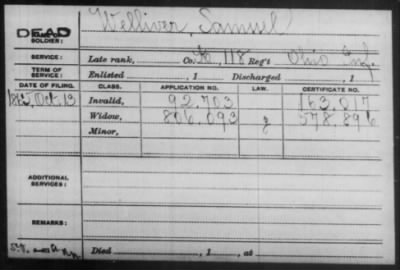 DEAD Welliver, Samuel
NAME OF SOLDIER:
SERVICE: Late rank, Co. 118 Reg't Ohio Inf.
TERM OF SERVICE: Enlisted , 1 Discharged , 1
DATE OF FILING. CLASS. APPLICATION NO. LAW. CERTIFICATE NO.
Oct. 13 Invalid, 92,703 163,017
Widow, 806,093 578,896
Minor,
ADDITIONAL SERVICES:
REMARKS:
Died , 1 , at